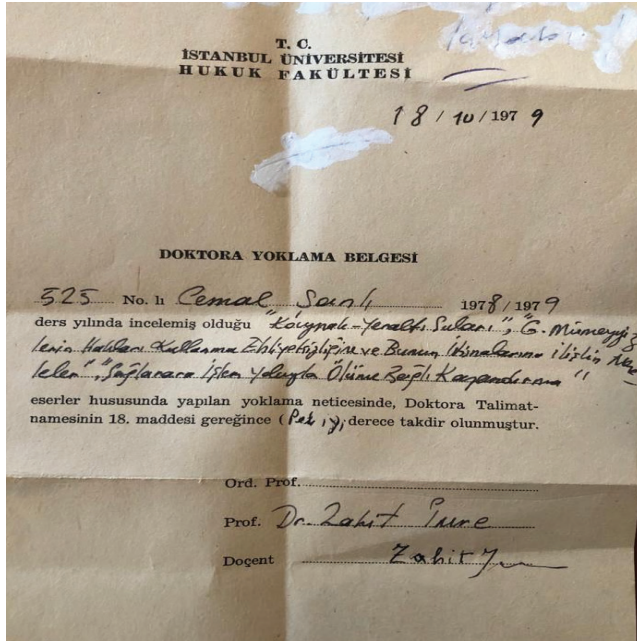 T. C.
İSTANBUL ÜNİVERSİTESİ
HUKUK FAKÜLTESİ
18/10/1979
DOKTORA YOKLAMA BELGESİ
525 No. lı Cemal Şanlı 1978/1979
ders yılında incelemiş olduğu "Kaynak-Yeraltı Suları", "G. Mümeyyiz
lerin Hakları Kullanma Ehliyetsizliğine ve Bunun İstisnalarına ilişkin
leler", "Sağlararası İşlem Yoluyla Ölüme Bağlı Kazandırma"
eserler hususunda yapılan yoklama neticesinde, Doktora Talimat-
namesinin 18. maddesi gereğince (Pek iyi) derece takdir olunmuştur.
Ord. Prof.
Prof. Dr. Zahit İmre
Doçent Zahit